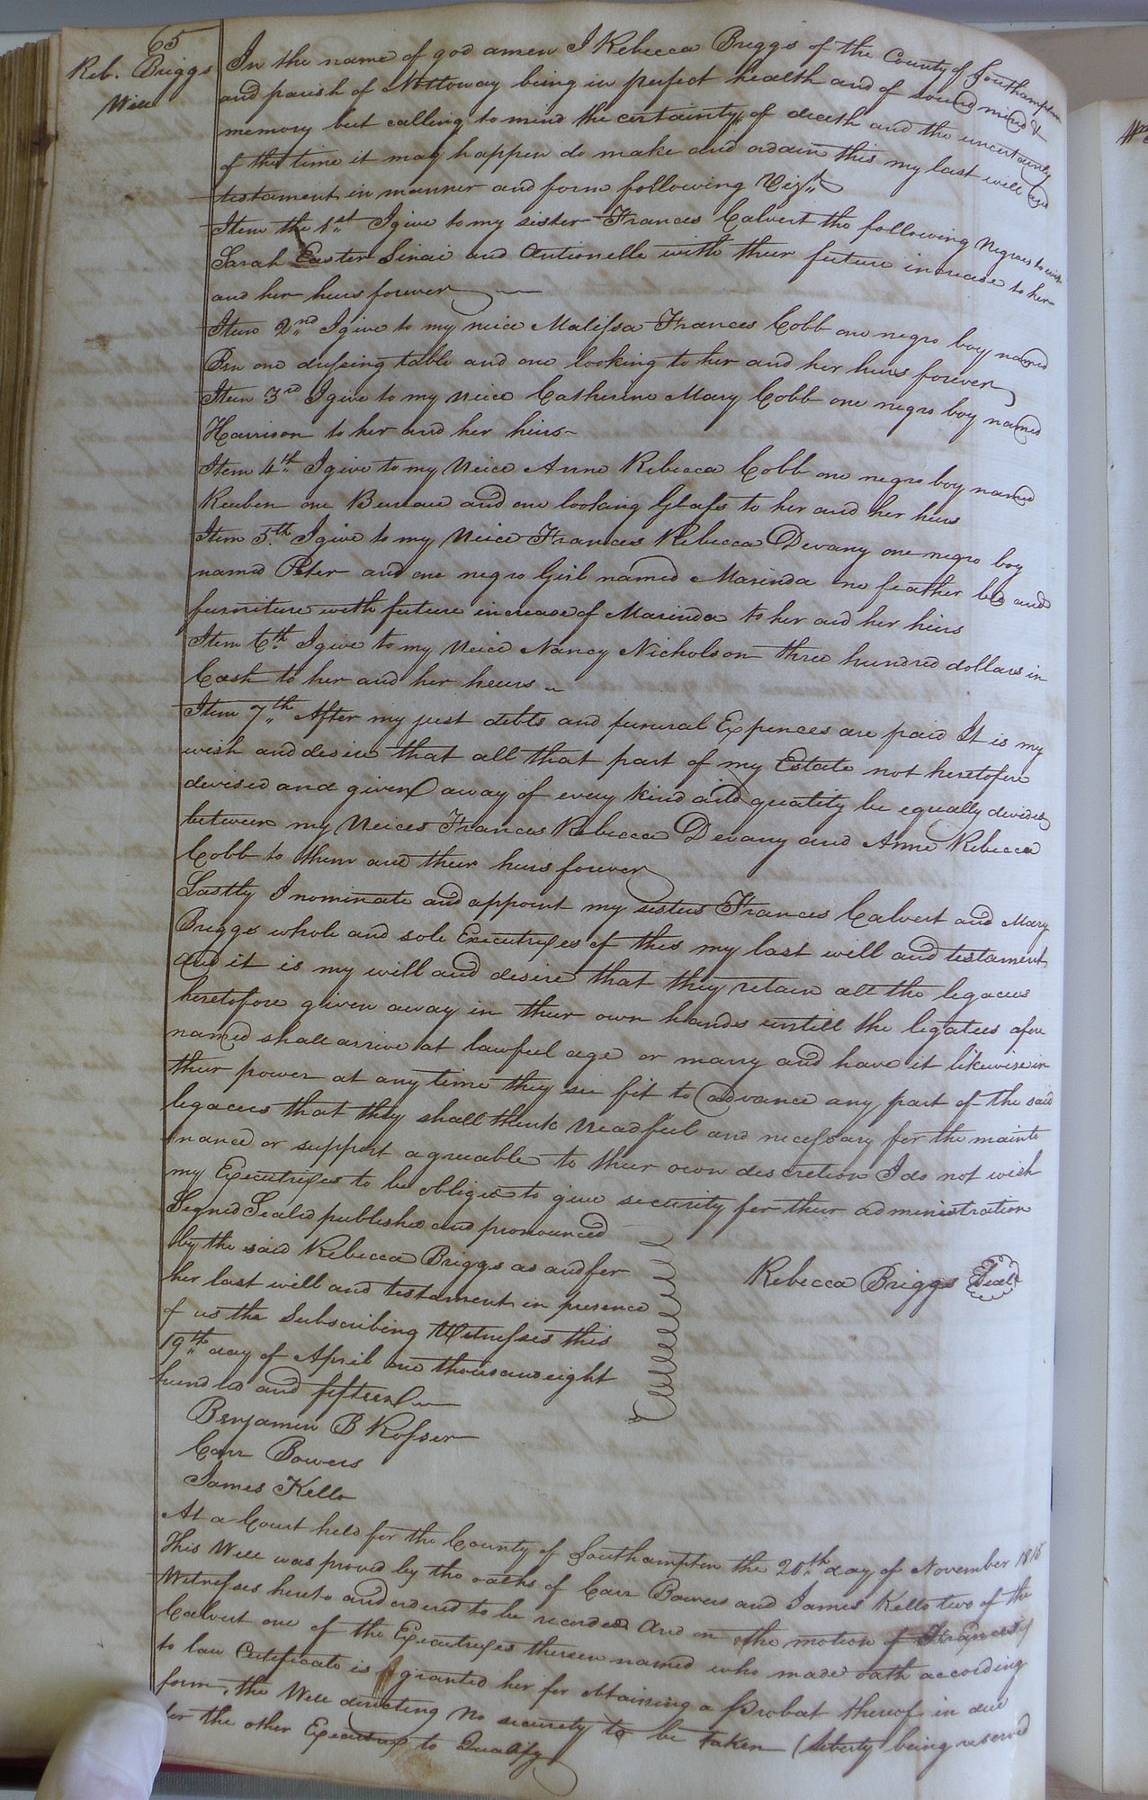 65
Reb. Briggs
Will
In the name of god amen I Rebecca Briggs of the County of Southampton
and parish of Nottoway being in perfect health and of sound mind &
memory but calling to mind the certainty of death and the uncertainty
of the time it may happen do make and ordain this my last will and
testament in manner and form following Vizt
Item the 1st I give to my sister Frances Calvert the following Negroes to wit
Sarah Easter Sinai and Antionelle with their future increase to her
and her heirs forever
Item 2nd I give to my neice Malissa Frances Cobb one negro boy named
Ben one dressing table and one looking to her and her heirs forever
Item 3rd I give to my neice Catherine Mary Cobb one negro boy named
Harrison to her and her heirs
Item 4th I give to my Neice Anne Rebecca Cobb one negro boy named
Reuben one Bureau and one looking Glass to her and her heirs
Item 5th I give to my Neice Frances Rebecca Devany one negro boy
named Peter and one negro Girl named Marinda one feather bed and
furniture with future increase of Marinda to her and her heirs
Item 6th I give to my Neice Nancy Nicholson three hundred dollars in
Cash to her and her heirs
Item 7th After my just debts and funural Expences are paid It is my
wish and desire that all that part of my Estate not heretofore
devised and given away of every kind and quality be equally divided
between my Neices Frances Rebecca Devany and Anne Rebecca
Cobb to them and their heirs forever
Lastly I nominate and appoint my sisters Frances Calvert and Mary
Briggs whole and sole Executrixes of this my last will and testament
and it is my will and desire that they retain all the legacies
heretofore given away in their own hands untill the legatees afore
named shall arrive at lawfull age or marry and have it likewise in
their power at any time they see fit to advance any part of the said
legacies that they shall think neadfull and necessary for the mainte
nance or support agreeable to their own descretion I do not wish
my Executrixes to be obliged to give security for their administration
Signed Sealed published and pronounced
by the said Rebecca Briggs as and for
her last will and testament in presence
of us the Subscribing Witnesses this
19th day of April one thousand eight
hundred and fifteen
Rebecca Briggs Seal
Benjamin B Rosser
Carr Bowers
James Kello
At a Court held for the County of Southampton the 20th day of November 1815
This Will was proved by the oaths of Carr Bowers and James Kello two of the
Witnesses hereto and ordered to be recorded And on the motion of Frances
Calvert one of the Executrixes therein named who made oath according
to law Certificate is granted her for obtaining a Probat thereof in due
form, the Will directing no security to be taken (liberty being reserved
for the other Executrix to Qualify